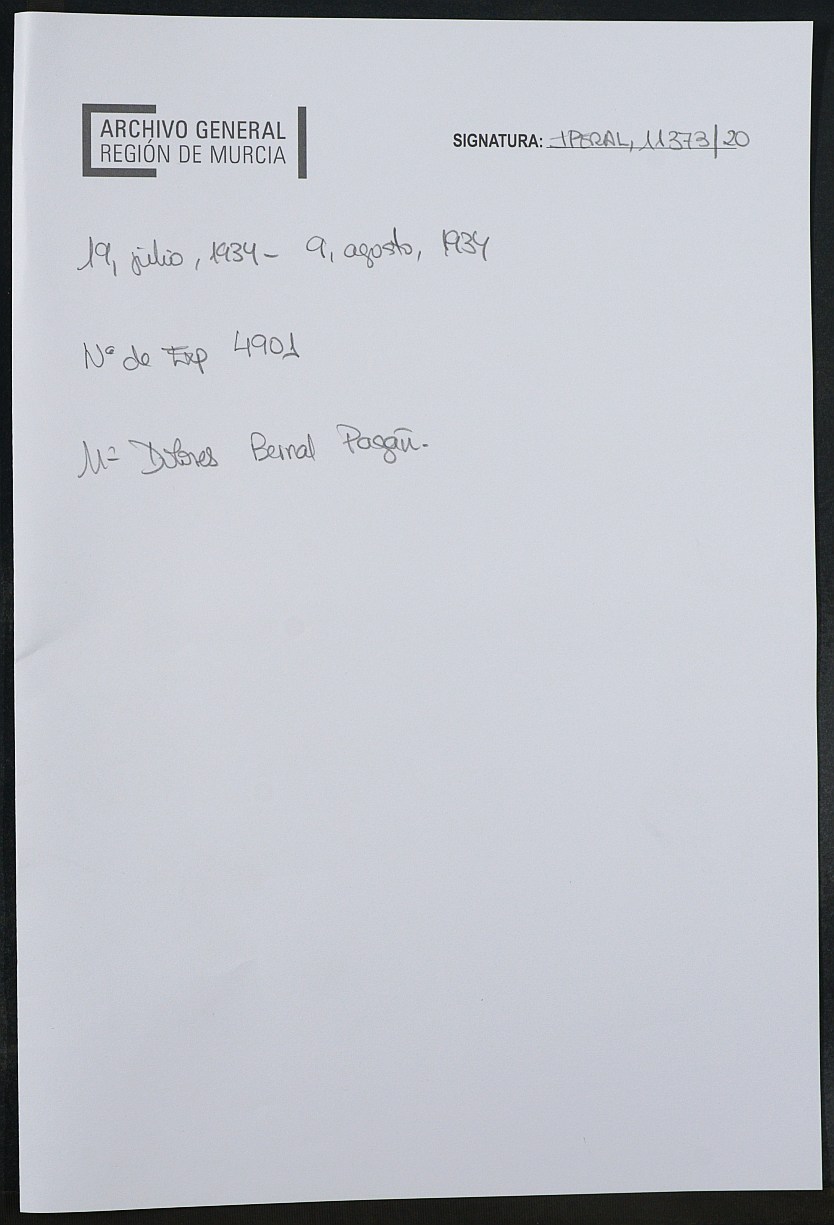 ARCHIVO GENERAL
REGIÓN DE MURCIA
SIGNATURA: IPERAL, 11373/20
19, julio, 1934 - 9, agosto, 1934
Nº de Exp 4901
Mª Dolores Bernal Pagán.